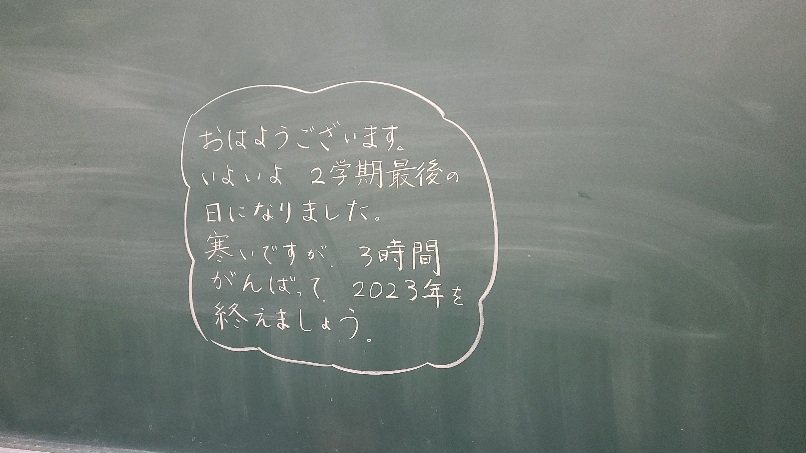 おはようございます。
いよいよ 2学期最後の
日になりました。
寒いですが、3時間
がんばって、2023年を
終えましょう。